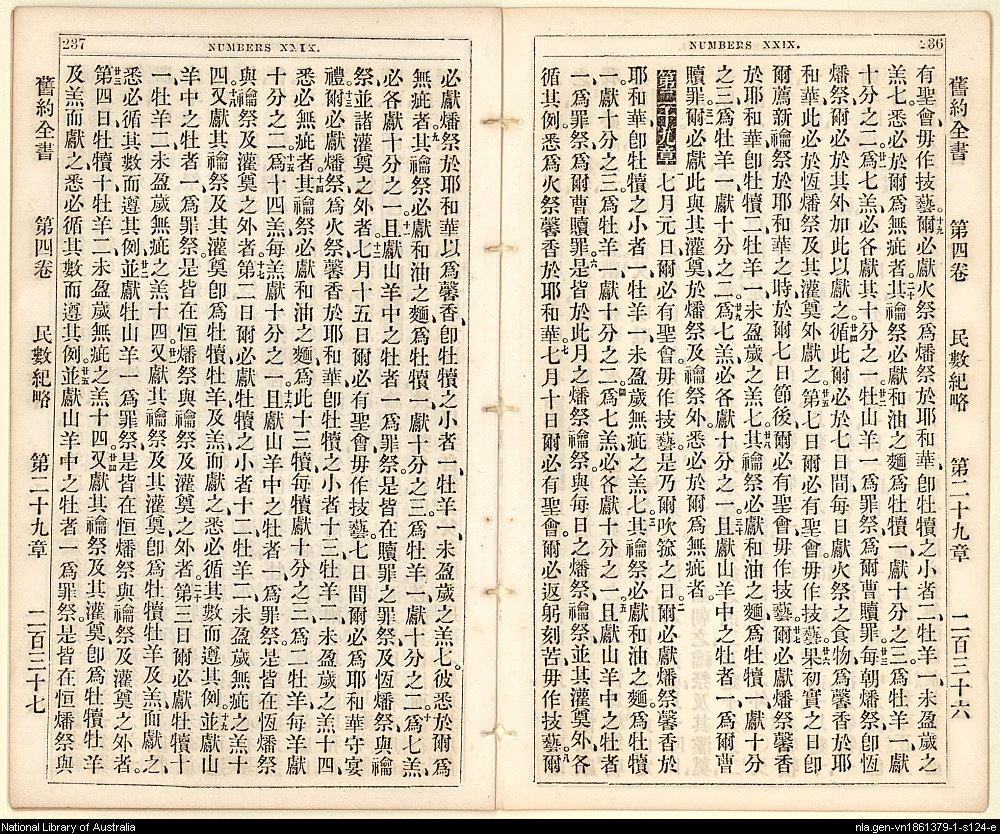 236
NUMBERS XXIX.
舊約全書 第四卷 民數紀略 第二十九章 二百三十六
有聖會、毋作技藝。十九爾必獻火祭、爲燔祭於耶和華、卽牡犢之小者二、牡羊一、未盈歲之
羔七、悉必於爾爲無疵者。二十其禴祭必獻和油之麵、爲牡犢一獻十分之三、爲牡羊一獻
十分之二、廿一爲七羔必各獻其十分之一、廿二牡山羊一、爲罪祭、爲爾曹贖罪、廿三每朝燔祭、卽恆
燔祭、爾必於其外加此以獻之。廿四循此爾必於七日間每日獻火祭之食物、爲馨香於耶
和華、此必於恆燔祭及其灌奠外獻之。廿五第七日爾必有聖會、毋作技藝。廿六果初實之日、卽
爾薦新禴祭於耶和華之時、於爾七日節後、爾必有聖會、毋作技藝。廿七爾必獻燔祭馨香
於耶和華、卽牡犢二、牡羊一、未盈歲之羔七。廿八其禴祭必獻和油之麵、爲牡犢一獻十分
之三、爲牡羊一獻十分之二、廿九爲七羔必各獻十分之一、三十且獻山羊中之牡者一、爲爾曹
贖罪。卅一爾必獻此與其灌奠、於燔祭及禴祭外、悉必於爾爲無疵者。
第二十九章 一七月元日、爾必有聖會、毋作技藝、是乃爾吹箛之日。二爾必獻燔祭馨香於
耶和華、卽牡犢之小者一、牡羊一、未盈歲無疵之羔七、三其禴祭必獻和油之麵、爲牡犢
一獻十分之三、爲牡羊一獻十分之二、四爲七羔必各獻十分之一、五且獻山羊中之牡者
一、爲罪祭、爲爾曹贖罪、六是皆於此月之燔祭禴祭、與每日之燔祭禴祭、並其灌奠外、各
循其例、悉爲火祭馨香於耶和華。七七月十日爾必有聖會、爾必返躬刻苦、毋作技藝、八爾
237
NUMBERS XXIX.
必獻燔祭於耶和華、以爲馨香、卽牡犢之小者一、牡羊一、未盈歲之羔七、彼悉於爾爲
無疵者、九其禴祭必獻和油之麵、爲牡犢一獻十分之三、爲牡羊一獻十分之二、十爲七羔
必各獻十分之一、十一且獻山羊中之牡者一、爲罪祭、是皆在贖罪之罪祭、及恆燔祭與禴
祭、並諸灌奠之外者。十二七月十五日爾必有聖會、毋作技藝、七日間爾必爲耶和華守宴
禮、十三爾必獻燔祭、爲火祭馨香於耶和華、卽牡犢之小者十三、牡羊二、未盈歲之羔十四、
悉必爾爲無疵者、十四其禴祭必獻和油之麵、爲此十三犢每犢獻十分之三、爲二牡羊每羊獻
十分之二、十五爲十四羔每羔獻十分之一、十六且獻山羊中之牡者一、爲罪祭、是皆在恆燔祭
與禴祭及灌奠之外者。十七第二日爾必獻牡犢之小者十二、牡羊二、未盈歲無疵之羔十
四、十八又獻其禴祭及其灌奠、卽爲牡犢牡羊及羔而獻之、悉必循其數而遵其例、十九並獻山
羊中之牡者一、爲罪祭、是皆在恆燔祭與禴祭及灌奠之外者。二十第三日爾必獻牡犢十
一、牡羊二、未盈歲無疵之羔十四、廿一又獻其禴祭及其灌奠、卽爲牡犢牡羊及羔而獻之、
悉必循其數而遵其例、廿二並獻牡山羊一、爲罪祭、是皆在恆燔祭與禴祭及灌奠之外者。
廿三第四日牡犢十、牡羊二、未盈歲無疵之羔十四、廿四又獻其禴祭及其灌奠、卽爲牡犢牡羊
及羔而獻之、悉必循其數而遵其例、廿五並獻山羊中之牡者一、爲罪祭、是皆在恆燔祭與
舊約全書 第四卷 民數紀略 第二十九章 二百三十七
National Library of Australia
nla.gen-vn1861379-1-s124-e